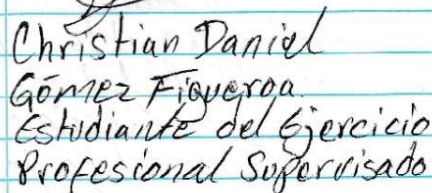 Christian Daniel
Gómez Figueroa.
Estudiante del Ejercicio
Profesional Supervisado